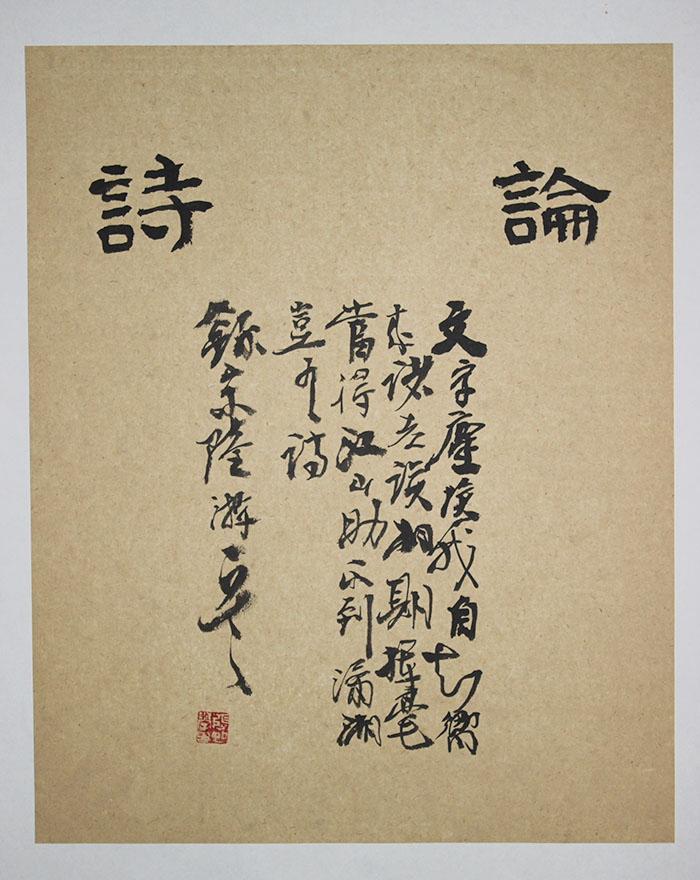 論詩
文字塵埃我自知嚮
來諸老誤相期揮毫
當得江山助不到瀟湘
豈有詩
錄宋陸游